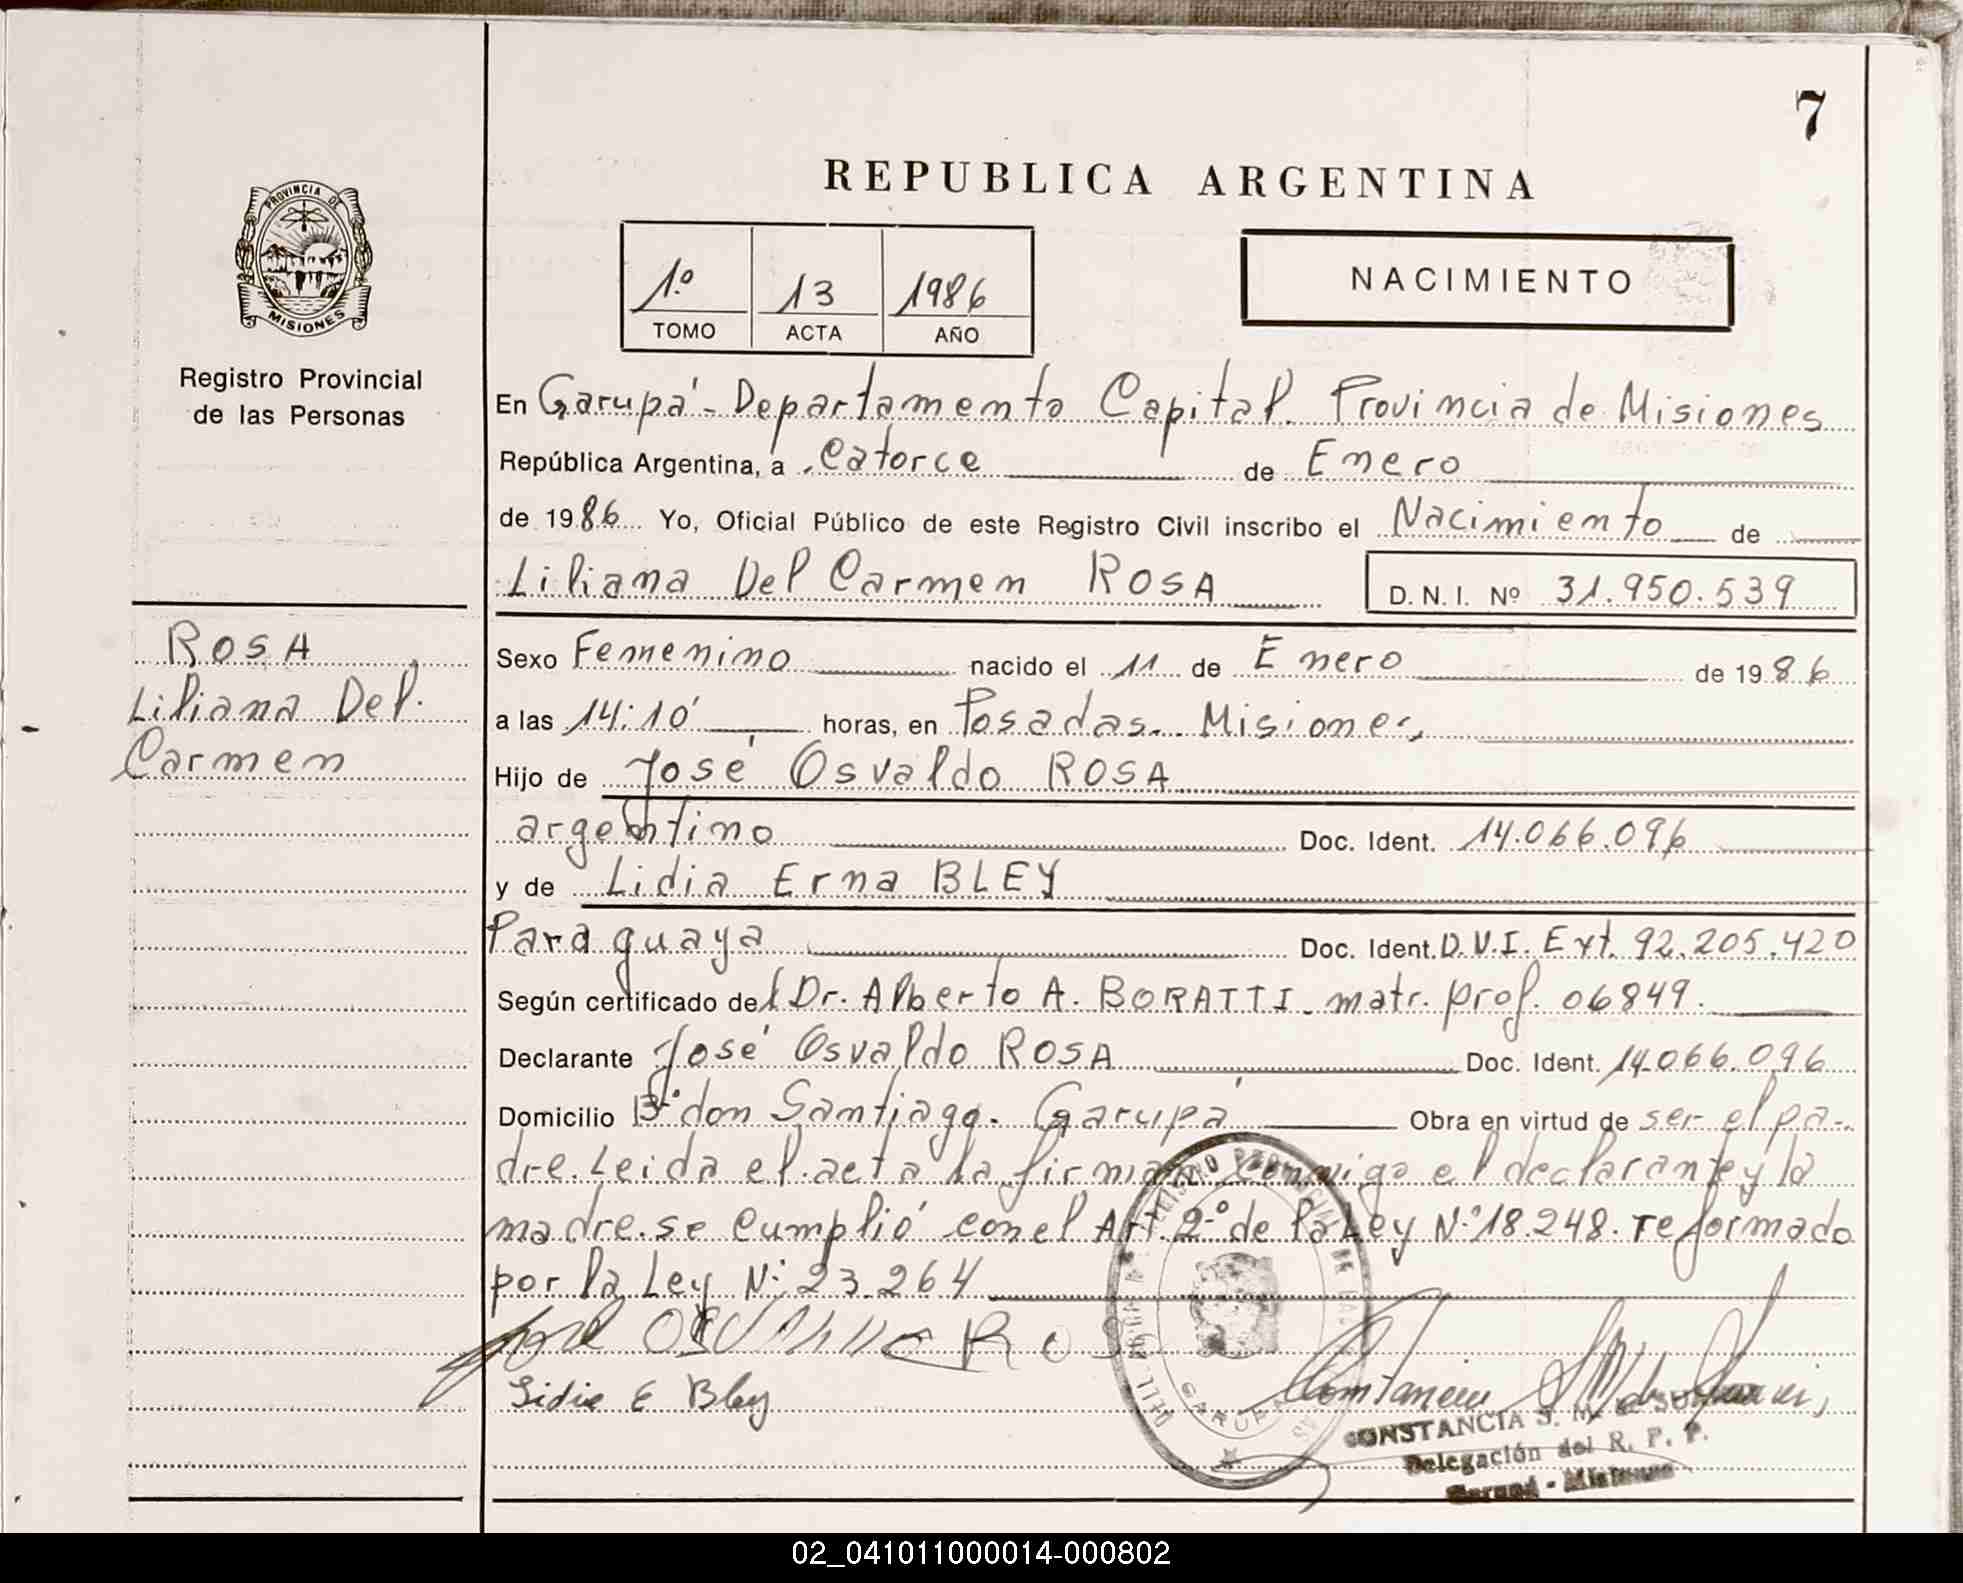 7
REPUBLICA ARGENTINA
PROVINCIA DE
MISIONES
Registro Provincial
de las Personas
1º 13 1986
TOMO ACTA AÑO
NACIMIENTO
En Garupá - Departamento Capital. Provincia de Misiones
República Argentina, a Catorce de Enero
de 1986 Yo, Oficial Público de este Registro Civil inscribo el Nacimiento de
Liliana Del Carmen ROSA D.N.I. Nº 31.950.539
ROSA
Liliana Del
Carmen
Sexo Femenino nacido el 11 de Enero de 1986
a las 14:10 horas, en Posadas - Misiones
Hijo de José Osvaldo ROSA
argentino Doc. Ident. 14.066.096
y de Lidia Erna BLEY
Paraguaya Doc. Ident. D.N.I. Ext. 92.205.420
Según certificado del Dr. Alberto A. BORATTI. matr. prof. 06849.
Declarante José Osvaldo ROSA Doc. Ident. 14.066.096
Domicilio Bº don Santiago. Garupá Obra en virtud de ser el pa-
dre. Leida el acta la firman conmigo el declarante y la
madre. se cumplió con el Art. 2º de la Ley Nº 18.248. reformado
por la Ley Nº 23.264
José Osvaldo Rosa
Lidia E Bley
GARUPA
CONSTANCIA S. M. de
Delegación del R. P. P.
Garupá - Misiones
02_041011000014-000802